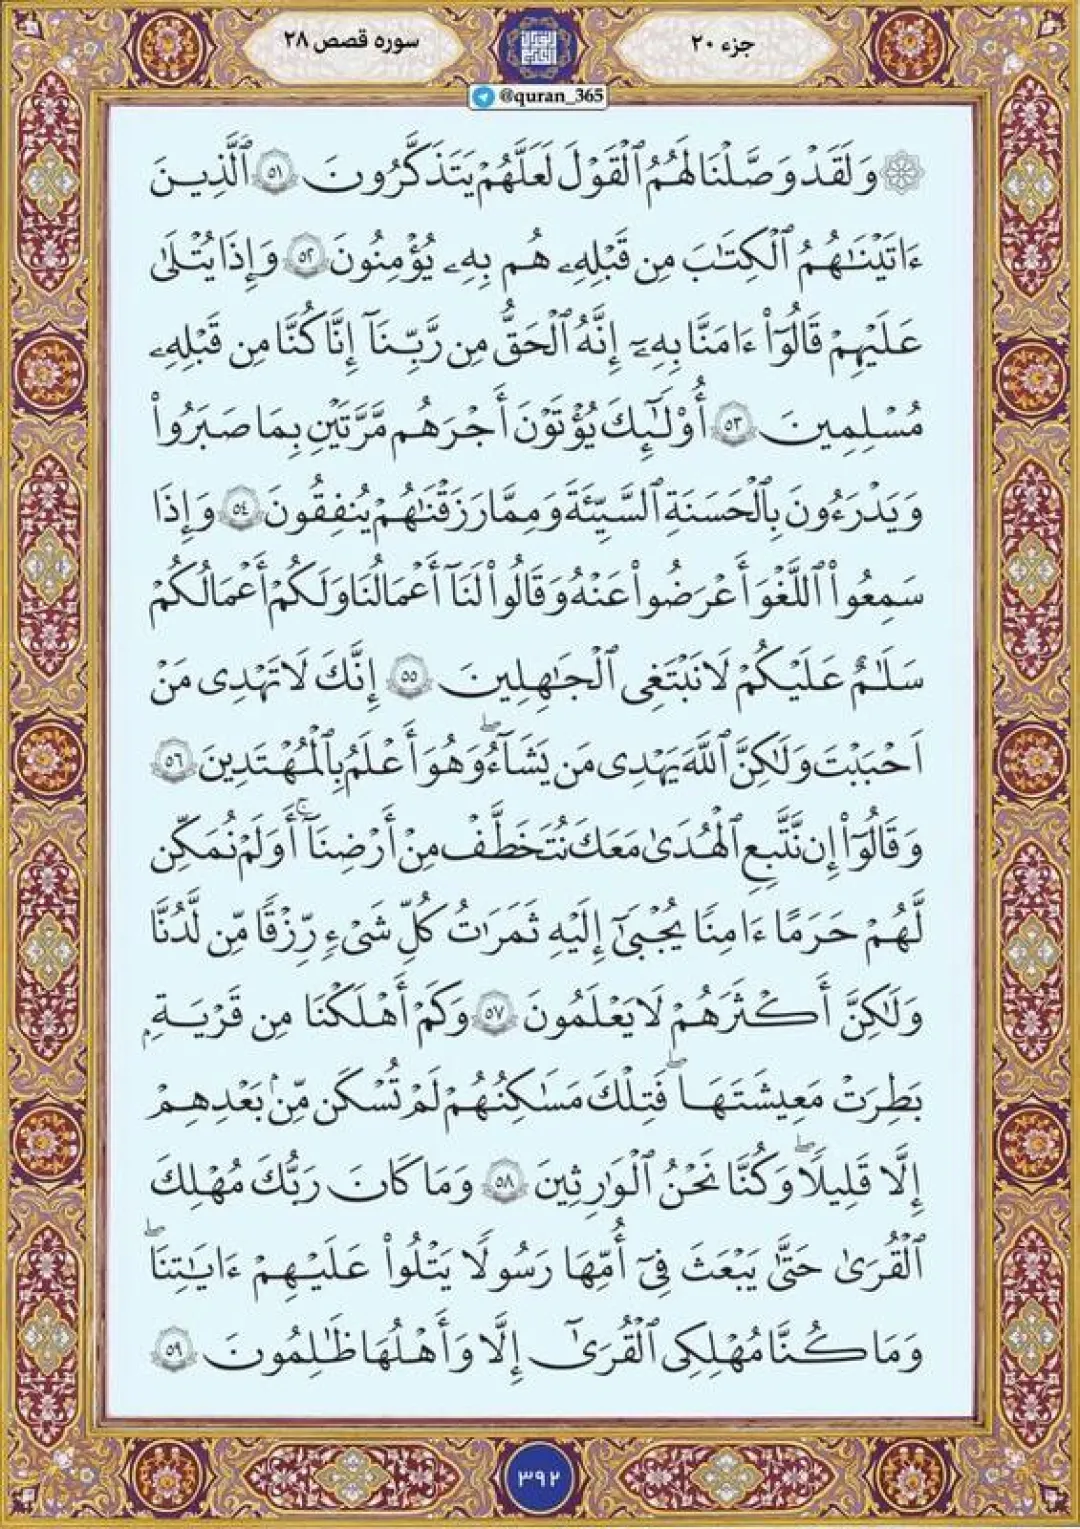 جزء ۲۰
سوره قصص ۲۸
@quran_365
۞ وَلَقَدْ وَصَّلْنَا لَهُمُ ٱلْقَوْلَ لَعَلَّهُمْ يَتَذَكَّرُونَ ٥١ ٱلَّذِينَ
ءَاتَيْنَٰهُمُ ٱلْكِتَٰبَ مِن قَبْلِهِۦ هُم بِهِۦ يُؤْمِنُونَ ٥٢ وَإِذَا يُتْلَىٰ
عَلَيْهِمْ قَالُوٓا۟ ءَامَنَّا بِهِۦٓ إِنَّهُ ٱلْحَقُّ مِن رَّبِّنَآ إِنَّا كُنَّا مِن قَبْلِهِۦ
مُسْلِمِينَ ٥٣ أُو۟لَٰٓئِكَ يُؤْتَوْنَ أَجْرَهُم مَّرَّتَيْنِ بِمَا صَبَرُوا۟
وَيَدْرَءُونَ بِٱلْحَسَنَةِ ٱلسَّيِّئَةَ وَمِمَّا رَزَقْنَٰهُمْ يُنفِقُونَ ٥٤ وَإِذَا
سَمِعُوا۟ ٱللَّغْوَ أَعْرَضُوا۟ عَنْهُ وَقَالُوا۟ لَنَآ أَعْمَٰلُنَا وَلَكُمْ أَعْمَٰلُكُمْ
سَلَٰمٌ عَلَيْكُمْ لَا نَبْتَغِى ٱلْجَٰهِلِينَ ٥٥ إِنَّكَ لَا تَهْدِى مَنْ
أَحْبَبْتَ وَلَٰكِنَّ ٱللَّهَ يَهْدِى مَن يَشَآءُ ۖ وَهُوَ أَعْلَمُ بِٱلْمُهْتَدِينَ ٥٦
وَقَالُوٓا۟ إِن نَّتَّبِعِ ٱلْهُدَىٰ مَعَكَ نُتَخَطَّفْ مِنْ أَرْضِنَآ ۚ أَوَلَمْ نُمَكِّن
لَّهُمْ حَرَمًا ءَامِنًا يُجْبَىٰٓ إِلَيْهِ ثَمَرَٰتُ كُلِّ شَىْءٍ رِّزْقًا مِّن لَّدُنَّا
وَلَٰكِنَّ أَكْثَرَهُمْ لَا يَعْلَمُونَ ٥٧ وَكَمْ أَهْلَكْنَا مِن قَرْيَةٍۭ
بَطِرَتْ مَعِيشَتَهَا ۖ فَتِلْكَ مَسَٰكِنُهُمْ لَمْ تُسْكَن مِّنۢ بَعْدِهِمْ
إِلَّا قَلِيلًا ۖ وَكُنَّا نَحْنُ ٱلْوَٰرِثِينَ ٥٨ وَمَا كَانَ رَبُّكَ مُهْلِكَ
ٱلْقُرَىٰ حَتَّىٰ يَبْعَثَ فِىٓ أُمِّهَا رَسُولًا يَتْلُوا۟ عَلَيْهِمْ ءَايَٰتِنَا ۚ
وَمَا كُنَّا مُهْلِكِى ٱلْقُرَىٰٓ إِلَّا وَأَهْلُهَا ظَٰلِمُونَ ٥٩
۳۹۲